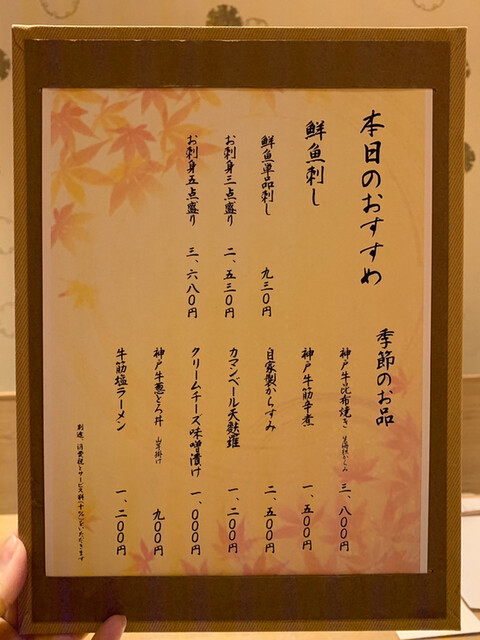 本日のおすすめ
鮮魚刺し
鮮魚単品刺し 九三〇円
お刺身三点盛り 二、五三〇円
お刺身五点盛り 三、六八〇円
季節のお品
神戸牛昆布焼き 三、八〇〇円
神戸牛筋辛煮 一、五〇〇円
自家製からすみ 二、五〇〇円
カマンベール天麩羅 一、二〇〇円
クリームチーズ味噌漬け 一、〇〇〇円
神戸牛葱とろ丼 山芋掛け 九〇〇円
牛筋塩ラーメン 一、二〇〇円
別途、消費税とサービス料(十%)をいただきます